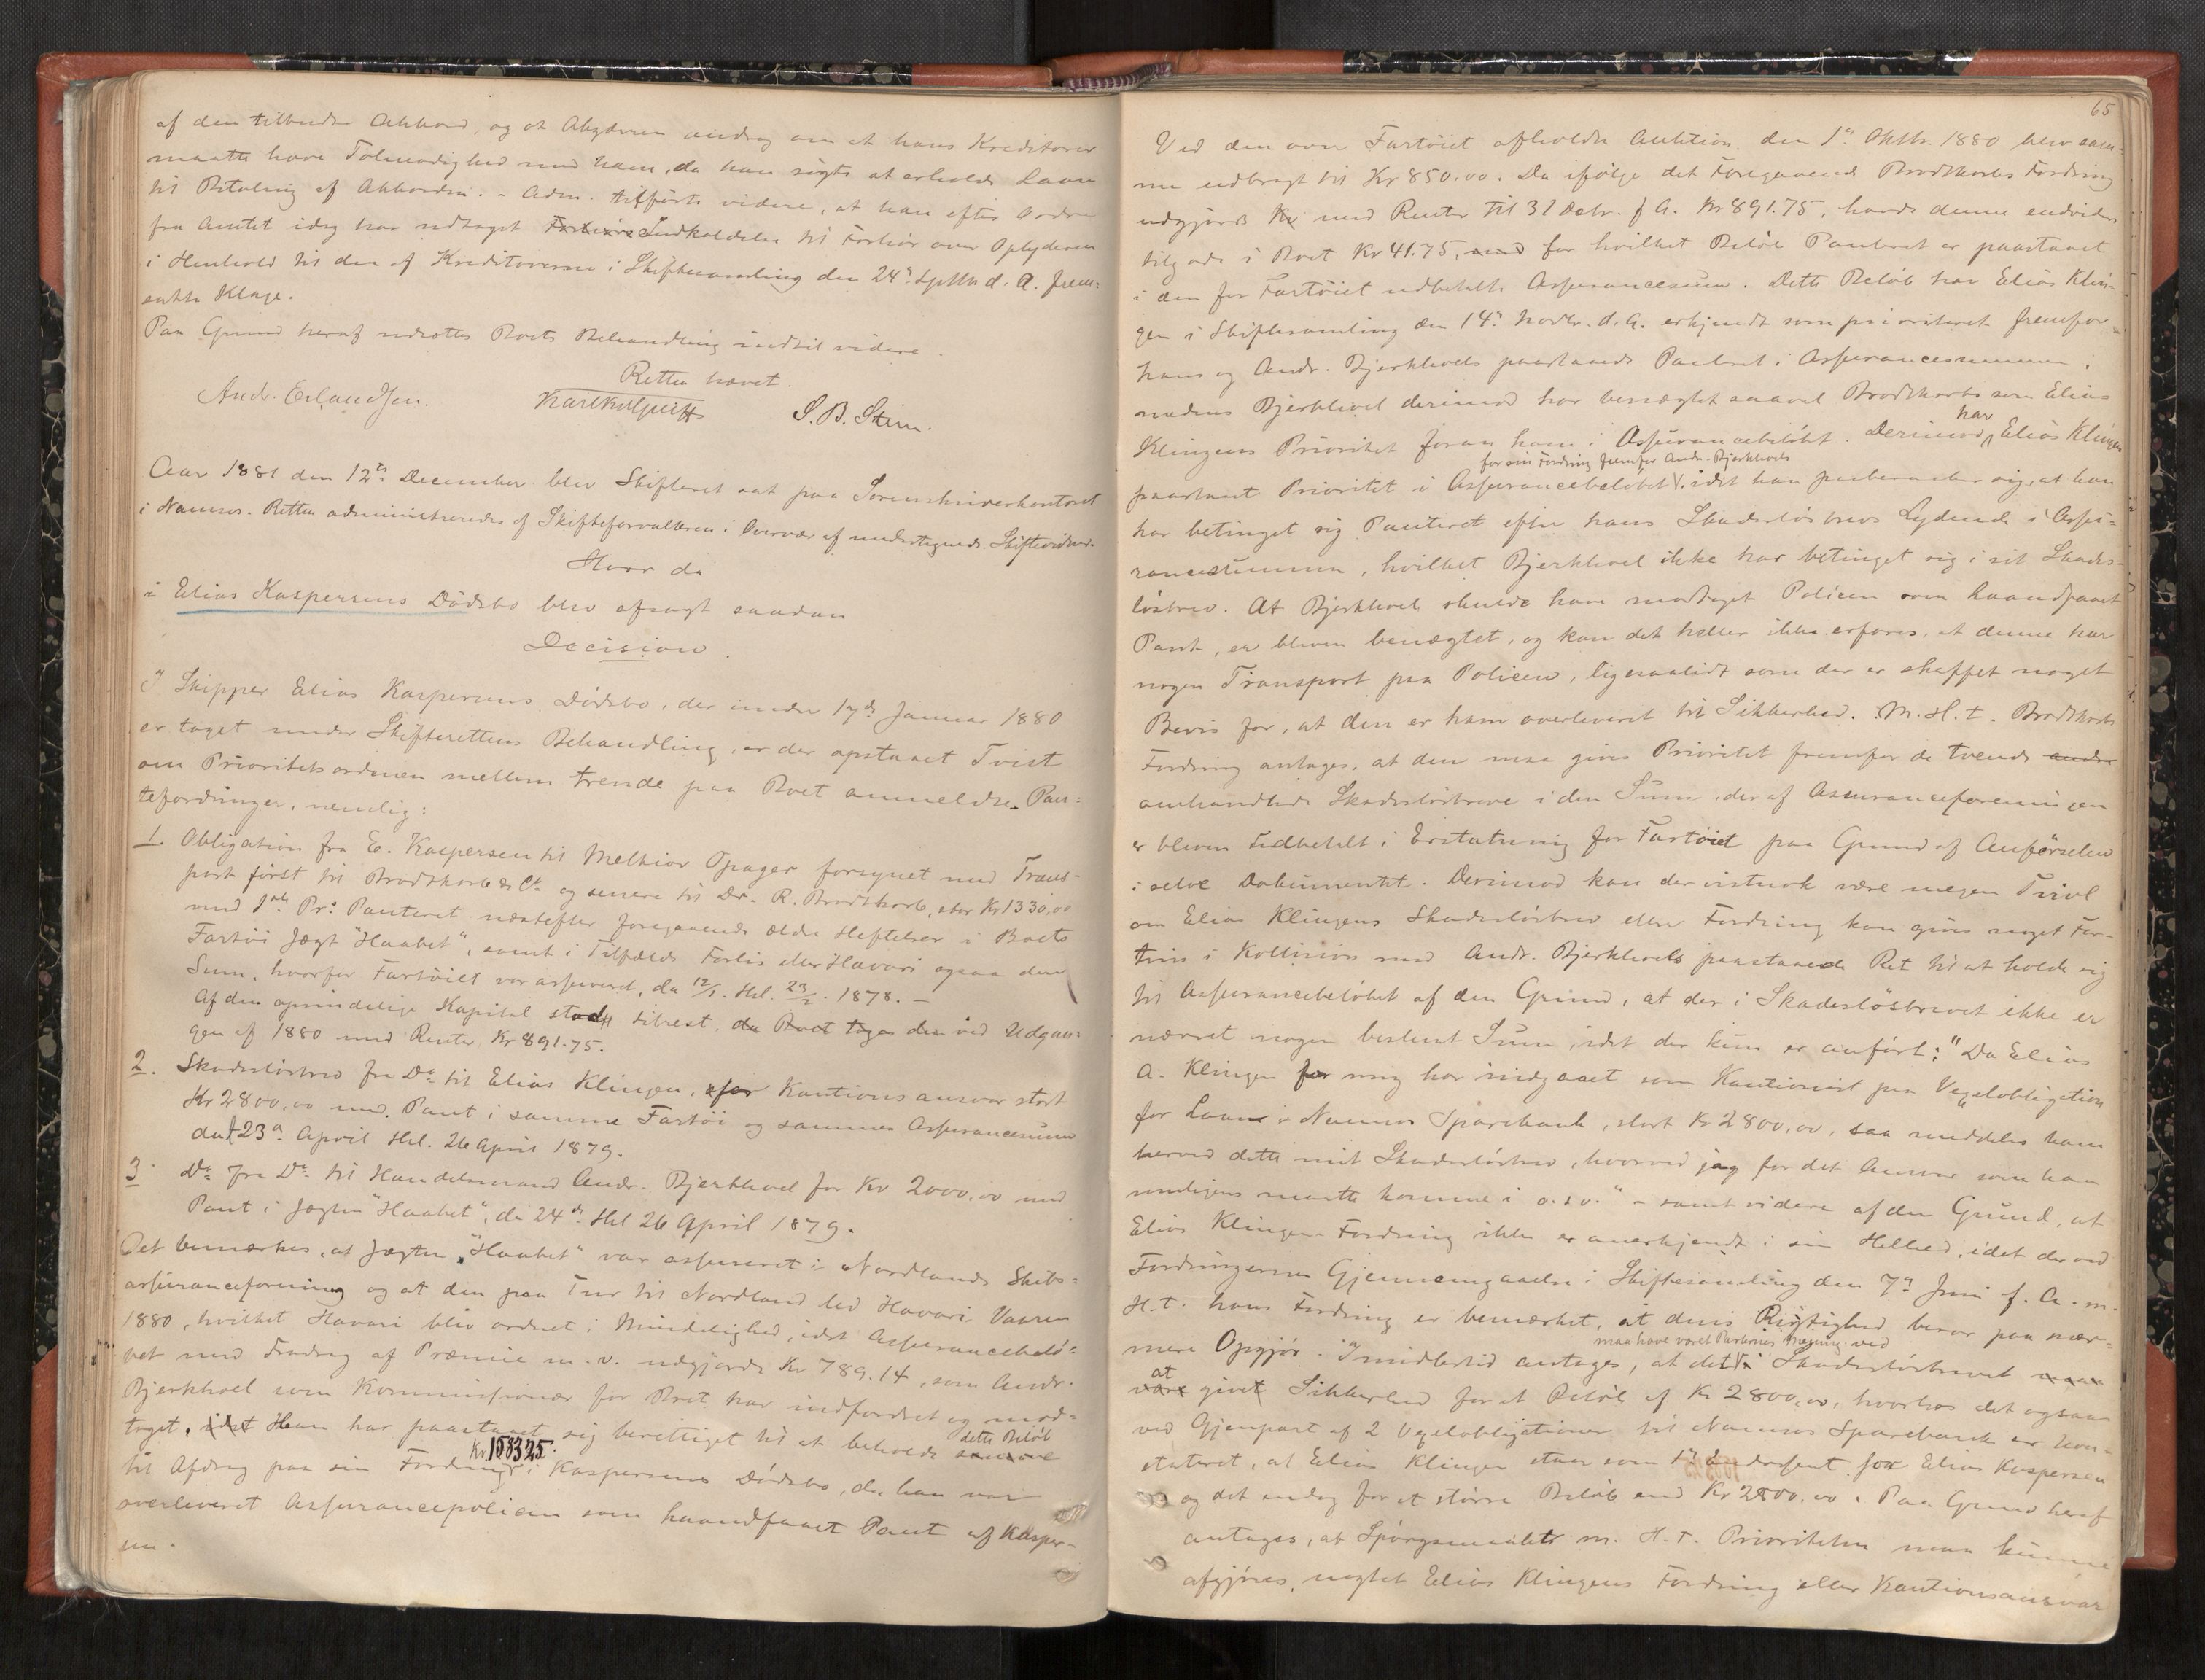 af den tilbudte Akkord, og at Angiveren androg om at hans Kreditorer
maatte have Tolmodighed med ham, da han søgte at erholde Laan
til Betaling af Akkorden. - Adm. tilførte videre, at han efter Ordre
fra Amtet idag har udtaget Indkaldelse til Forhør over Opbyderen
i Henhold til den af Kreditorerne i Skiftesamling den 24de Septbr d. A. frem-
satte Klage.
Paa Grund heraf udsattes Boets Behandling indtil videre.
Retten hævet.
Andr. Erlandsen. S. B. Strøm.
Aar 1881 den 12te December blev Skifteret sat paa Sorenskriverkontoret
i Namsos. Retten administreredes af Skifteforvalteren i Overvær af undertegnede Skiftevidner.
Hvor da
i Elias Kaspersens Dødsbo blev afsagt saadan
Decision.
I Skipper Elias Kaspersens Dødsbo, der under 17de Januar 1880
er taget under Skifterettens Behandling, er der opstaaet Tvist
om Prioritetsordenen mellem trende paa Boet anmeldte Pan-
tefordringer, nemlig:
1. Obligation fra E. Kaspersen til Melkior Opager forsynet med Trans-
port først til Brodtkorb & Co og senere til Dr. R. Brodtkorb, stor Kr 1330,00
med 1ste Pr: Panteret næstefter foregaaende ældre Heftelser i Boets
Fartøi Jægt "Haabet", samt i Tilfælde Forlis eller Havari ogsaa den
Sum, hvorfor Fartøiet var assureret, da 12/1. thl. 23/2. 1878. -
Af den oprindelige Kapital stod tilrest, da Boet toges den ved Udgan-
gen af 1880 med Renter Kr 891.75.
2. Skadesløsbrev fra Do til Elias Klingen, for Kautionsansvar stort
Kr 2800,00 med Pant i samme Fartøi og sammes Assurancesum
dat 23de April thl. 26 April 1879.
3. Do fra Do til Handelsmand Andr. Bjerkhoel for Kr 2000,00 med
Pant i Jægten "Haabet", da 24de thl 26 April 1879.
Det bemærkes, at Jægten "Haabet" var assureret i Nordlands Skibs-
assuranceforening og at den paa Tur til Nordland led Havari Vaaren
1880, hvilket Havari blev ordnet i Mindelighed, idet Assurancebelø-
bet med Fradrag af Præmie m. v. udgjorde Kr 789.14, som Andr.
Bjerkhoel som Kommissionær for Boet har indfordret og mod-
taget. Han har paastaaet sig berettiget til at beholde dette Beløb
til Afdrag paa sin Fordring Kr. 1583.25. i Kaspersens Dødsbo, da han var
overleveret Assurancepolicen som haandfaaet Pant af Kasper-
sen.
65
Ved den over Fartøiet afholdte Auktion den 1ste Oktbr. 1880 blev sam-
me udbragt til Kr 850.00. Da ifølge det Foregaaende Brodtkorbs Fordring
udgjorde med Renter til 31 Decbr. f A. Kr 891.75, havde denne endvidere
tilgode i Boet Kr 41.75, for hvilket Beløb Panteret er paastaaet
i den for Fartøiet udbetalte Assurancesum. Dette Beløb har Elias Klin-
gen i Skiftesamling den 14de Novbr. d. A. erkjendt som prioriteret fremfor
hans og Andr. Bjerkhoels paastaaede Panteret i Assurancesummen,
medens Bjerkhoel derimod har benægtet saavel Brodtkorbs som Elias
Klingens Prioritet foran ham i Assurancebeløbet. Derimod har Elias Klingen
paastaaet Prioritet i Assurancebeløbet for sin Fordring fremfor Andr. Bjerkhoels, idet han paaberaaber sig, at han
har betinget sig Panteret efter hans Skadesløsbrevs Lydende i Assu-
rancesummen, hvilket Bjerkhoel ikke har betinget sig i sit Skades-
løsbrev. At Bjerkhoel skulde have modtaget Policen som haandfaaet
Pant, er bleven benægtet, og kan det heller ikke erfares, at denne har
nogen Transport paa Policen, ligesaalidt som der er skaffet noget
Bevis for, at den er ham overleveret til Sikkerhed. M. H. t. Brodtkorbs
Fordring antages, at den maa gives Prioritet fremfor de tvende andre
omhandlede Skadesløsbreve i den Sum, der af Assuranceforeningen
er bleven udbetalt i Erstatning for Fartøiet paa Grund af Anførselen
i selve Dokumentet. Derimod kan der vistnok være megen Tvivl
om Elias Klingens Skadesløsbrev eller Fordring kan gives noget For-
trin i Kollision med Andr. Bjerkhoels paastaaede Ret til at holde sig
til Assurancebeløbet af den Grund, at der i Skadesløsbrevet ikke er
nævnt nogen bestemt Sum, idet der kun er anført: "Da Elias
A. Klingen for mig har indgaaet som Kautionist paa Vexelobligation
for Laan i Namsos Sparebank, stort Kr 2800,00, saa meddeles ham
herved dette mit Skadesløsbrev, hvorved jeg for det Ansvar som han
muligens maatte komme i o. s. v." - samt videre af den Grund, at
Elias Klingens Fordring ikke er anerkjendt i sin Helhed, idet der ved
Fordringernes Gjennemgaaelse i Skiftesamling den 7de Juni f. A. m.
H. t. hans Fordring er bemærket, at dens Rigtighed beror paa nær-
mere Opgjør. Imidlertid antages, at det maa have været Parternes Mening ved Skadesløsbrevet
at give Sikkerhed for et Beløb af Kr 2800,00, hvorhos det ogsaa
ved Gjenpart af 2 Vexelobligationer til Namsos Sparebank er kon-
stateret, at Elias Klingen staar som 1ste Endossent for Elias Kaspersen
og det endog for et større Beløb end Kr 2800,00. Paa Grund heraf
antages, at Spørgsmaalet m. H. t. Prioriteten maa kunne
afgjøres, uagtet Elias Klingens Fordring eller Kautionsansvar